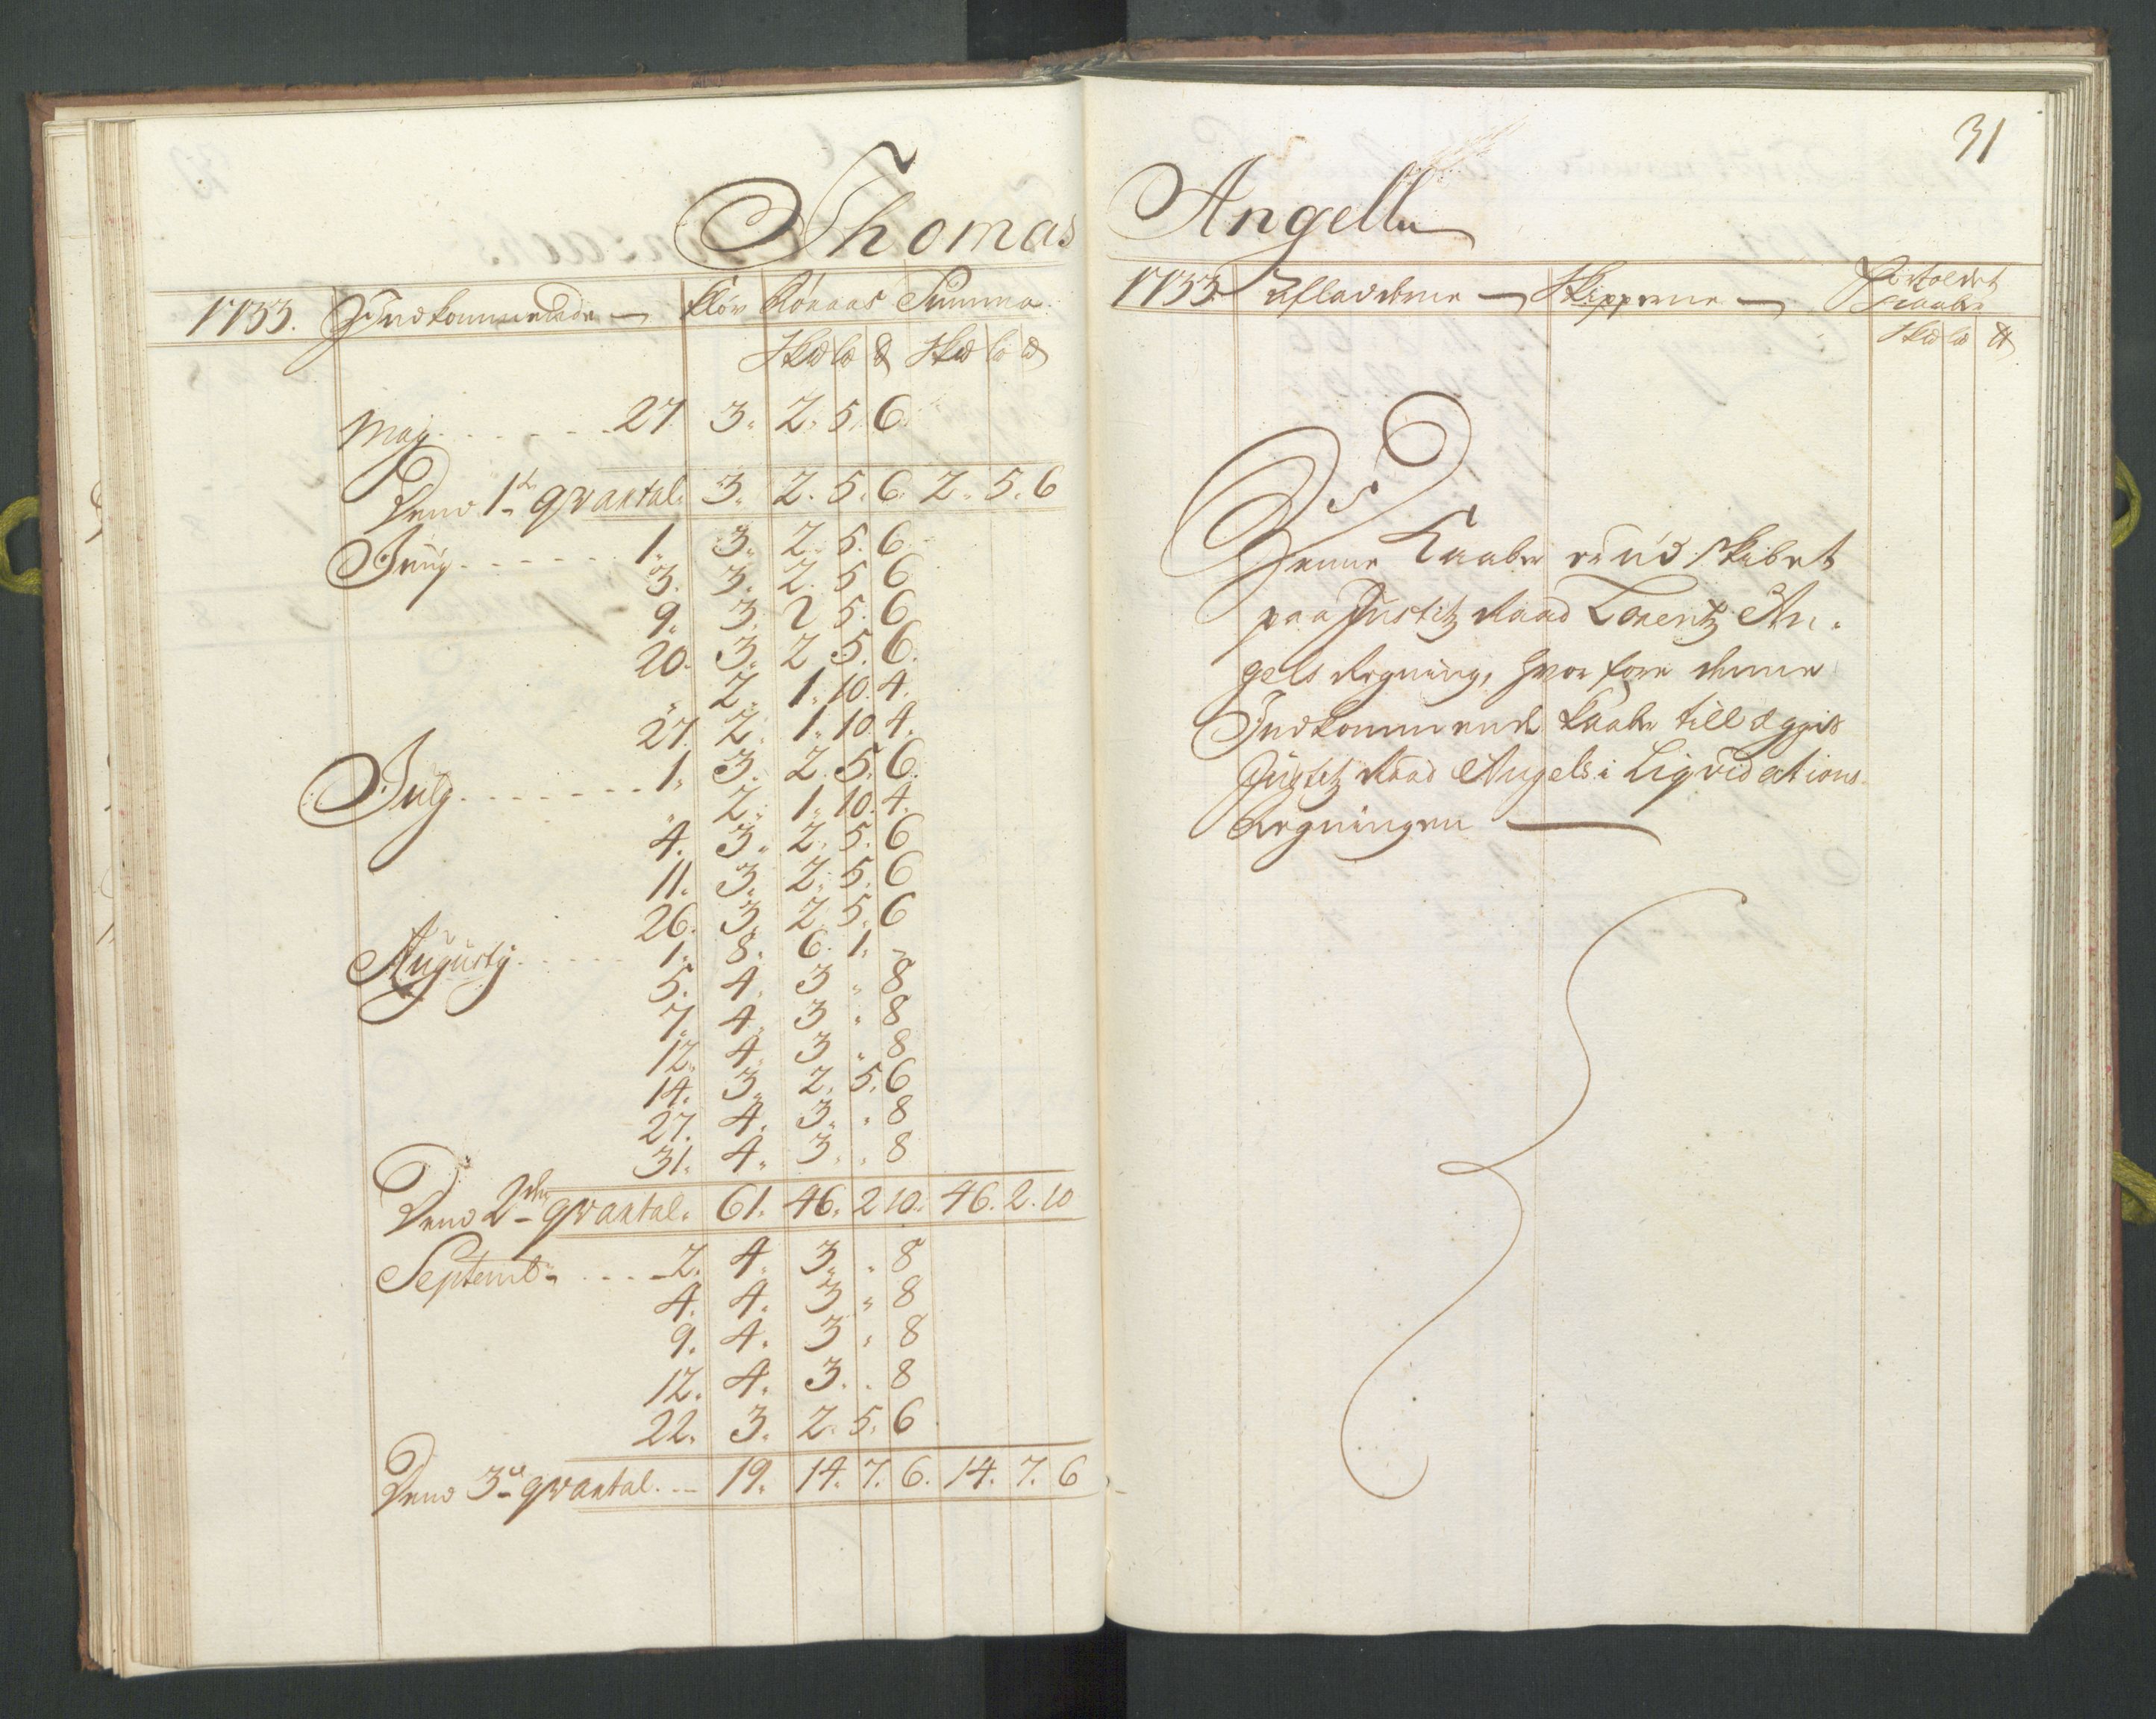 Thomas
1733. Indkommende — Kløv Røraas Summa.
Sk℔ L℔ ℔ Sk℔ L℔ ℔
May . . . . . . . 27. 3. 2. 5. 6.
Dend 1ste qvartal. 3. 2. 5. 6. 2. 5. 6
Juny . . . . . . 1. 3. 2. 5. 6.
3. 3. 2. 5. 6
9. 3. 2 5. 6
20. 3. 2. 5. 6.
" 2. 1. 10. 4.
27. 2. 1. 10. 4.
July . . . . . . . 1. 3. 2. 5. 6.
" 2. 1. 10. 4.
4. 3. 2. 5. 6
11. 3. 2. 5. 6
26. 3. 2. 5. 6
Augusty . . . . . 1. 8. 6. 1. -
5. 4. 3 " 8
7. 4. 3 " 8
12. 4. 3 " 8
14. 3. 2. 5. 6
27. 4. 3. " 8
31. 4. 3. " 8
Dend 2den qvartal. 61. 46. 2 10. 46. 2. 10
Septemb. . . . . 2. 4. 3. " 8
4. 4. 3 " 8
9. 4. 3 " 8
12. 4. 3. " 8
22. 3. 2. 5. 6
Dend 3de qvartal. . . 19. 14. 7. 6. 14. 7. 6
31
Angell
1733. Afladerne — Skipperne — Fortoldet
Kaaber
Sk℔ L℔ ℔
Denne Kaaber er udskibet
paa Justitz Raad Lorentz An-
gels Regning, hvor fore denne
Indkommende Kaaber tillægges
Justitz Raad Angels i Liqvidations
Regningen —